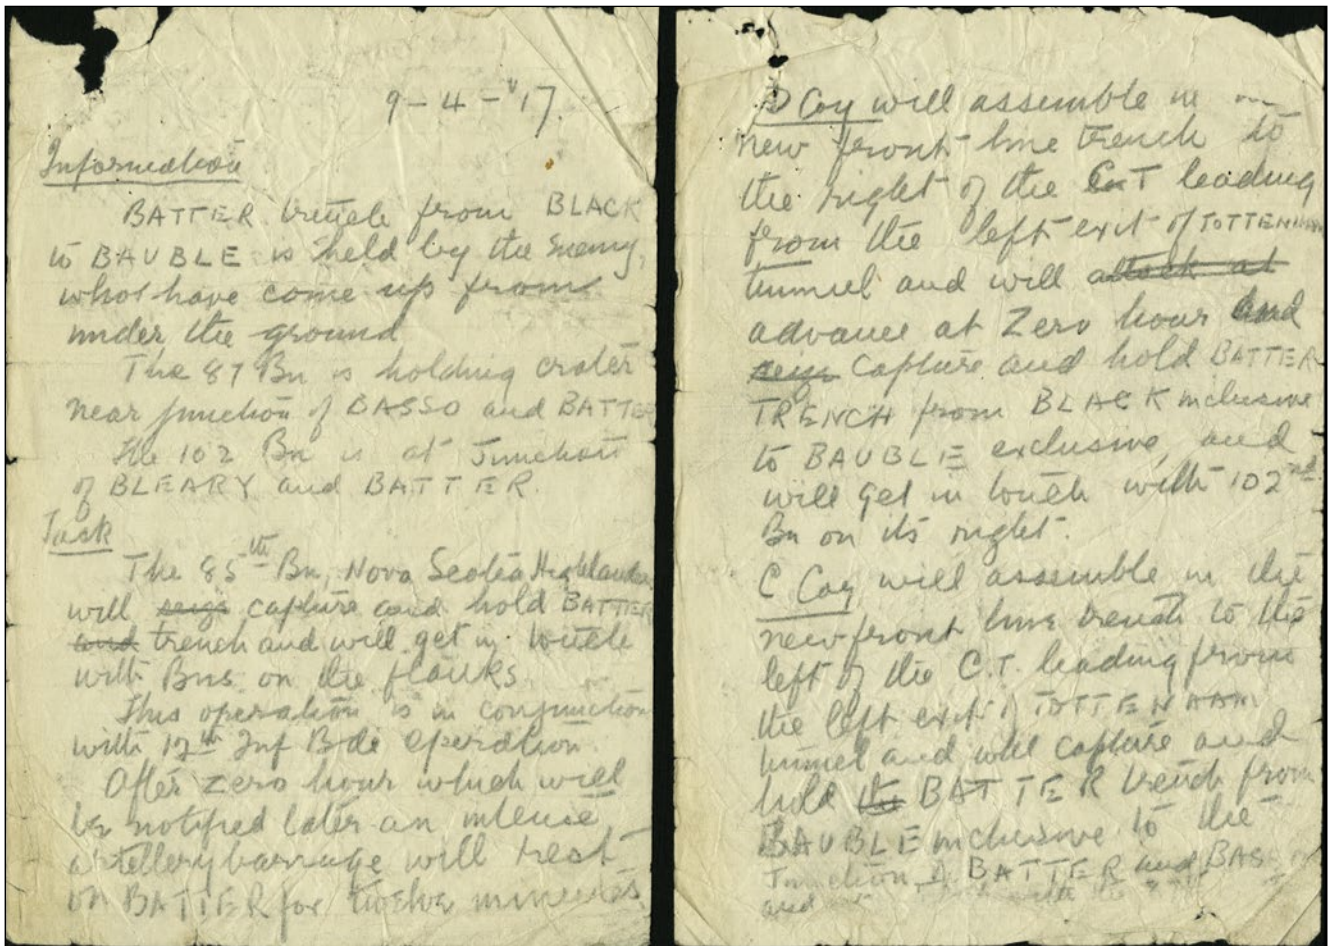 9-4-'17.
Information
BATTER trench from BLACK
to BAUBLE is held by the Enemy,
who have come up from
under the ground
The 87 Bn is holding crater
near junction of BASSO and BATTER
The 102 Bn is at Junction
of BLEARY and BATTER.
Task
The 85th Bn, Nova Scotia Highlanders
will seize capture and hold BATTER
and trench and will get in touch
with Bns on the flanks.
This operation is in conjunction
with 12th Inf Bde operation.
After zero hour which will
be notified later an intense
artillery barrage will rest
on BATTER for twelve minutes
D Coy will assemble in
new front line trench to
the right of the C.T leading
from the left exit of TOTTENHAM
tunnel and will attack at
advance at Zero hour and
seize Capture and hold BATTER
TRENCH from BLACK inclusive
to BAUBLE exclusive, and
will get in touch with 102nd
Bn on its right.
C Coy will assemble in the
new front line trench to the
left of the C.T. leading from
the left exit of TOTTENHAM
tunnel and will capture and
hold the BATTER trench from
BAUBLE inclusive to the
Junction of BATTER and BAS
and with the